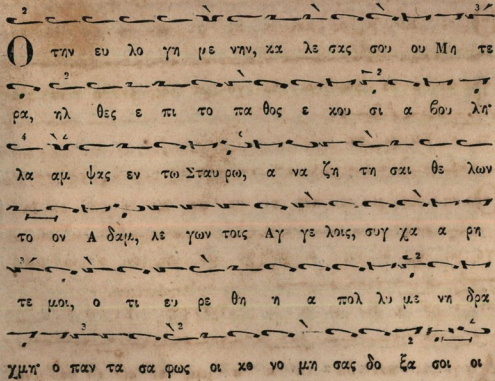 Ο την ευ λο γη με νην, κα λε σας σου ου Μη τε
ρα, ηλ θες ε πι το πα θος ε κου σι α βου λη·
λα αμ ψας εν τω Σταυ ρω, α να ζη τη σαι θε λων
το ον Α δαμ, λε γων τοις Αγ γε λοις, συγ χα α ρη
τε μοι, ο τι ευ ρε θη η α πολ λυ με νη δρα
χμη· ο παν τα σα φως οι κο νο μη σας δο ξα σοι οι